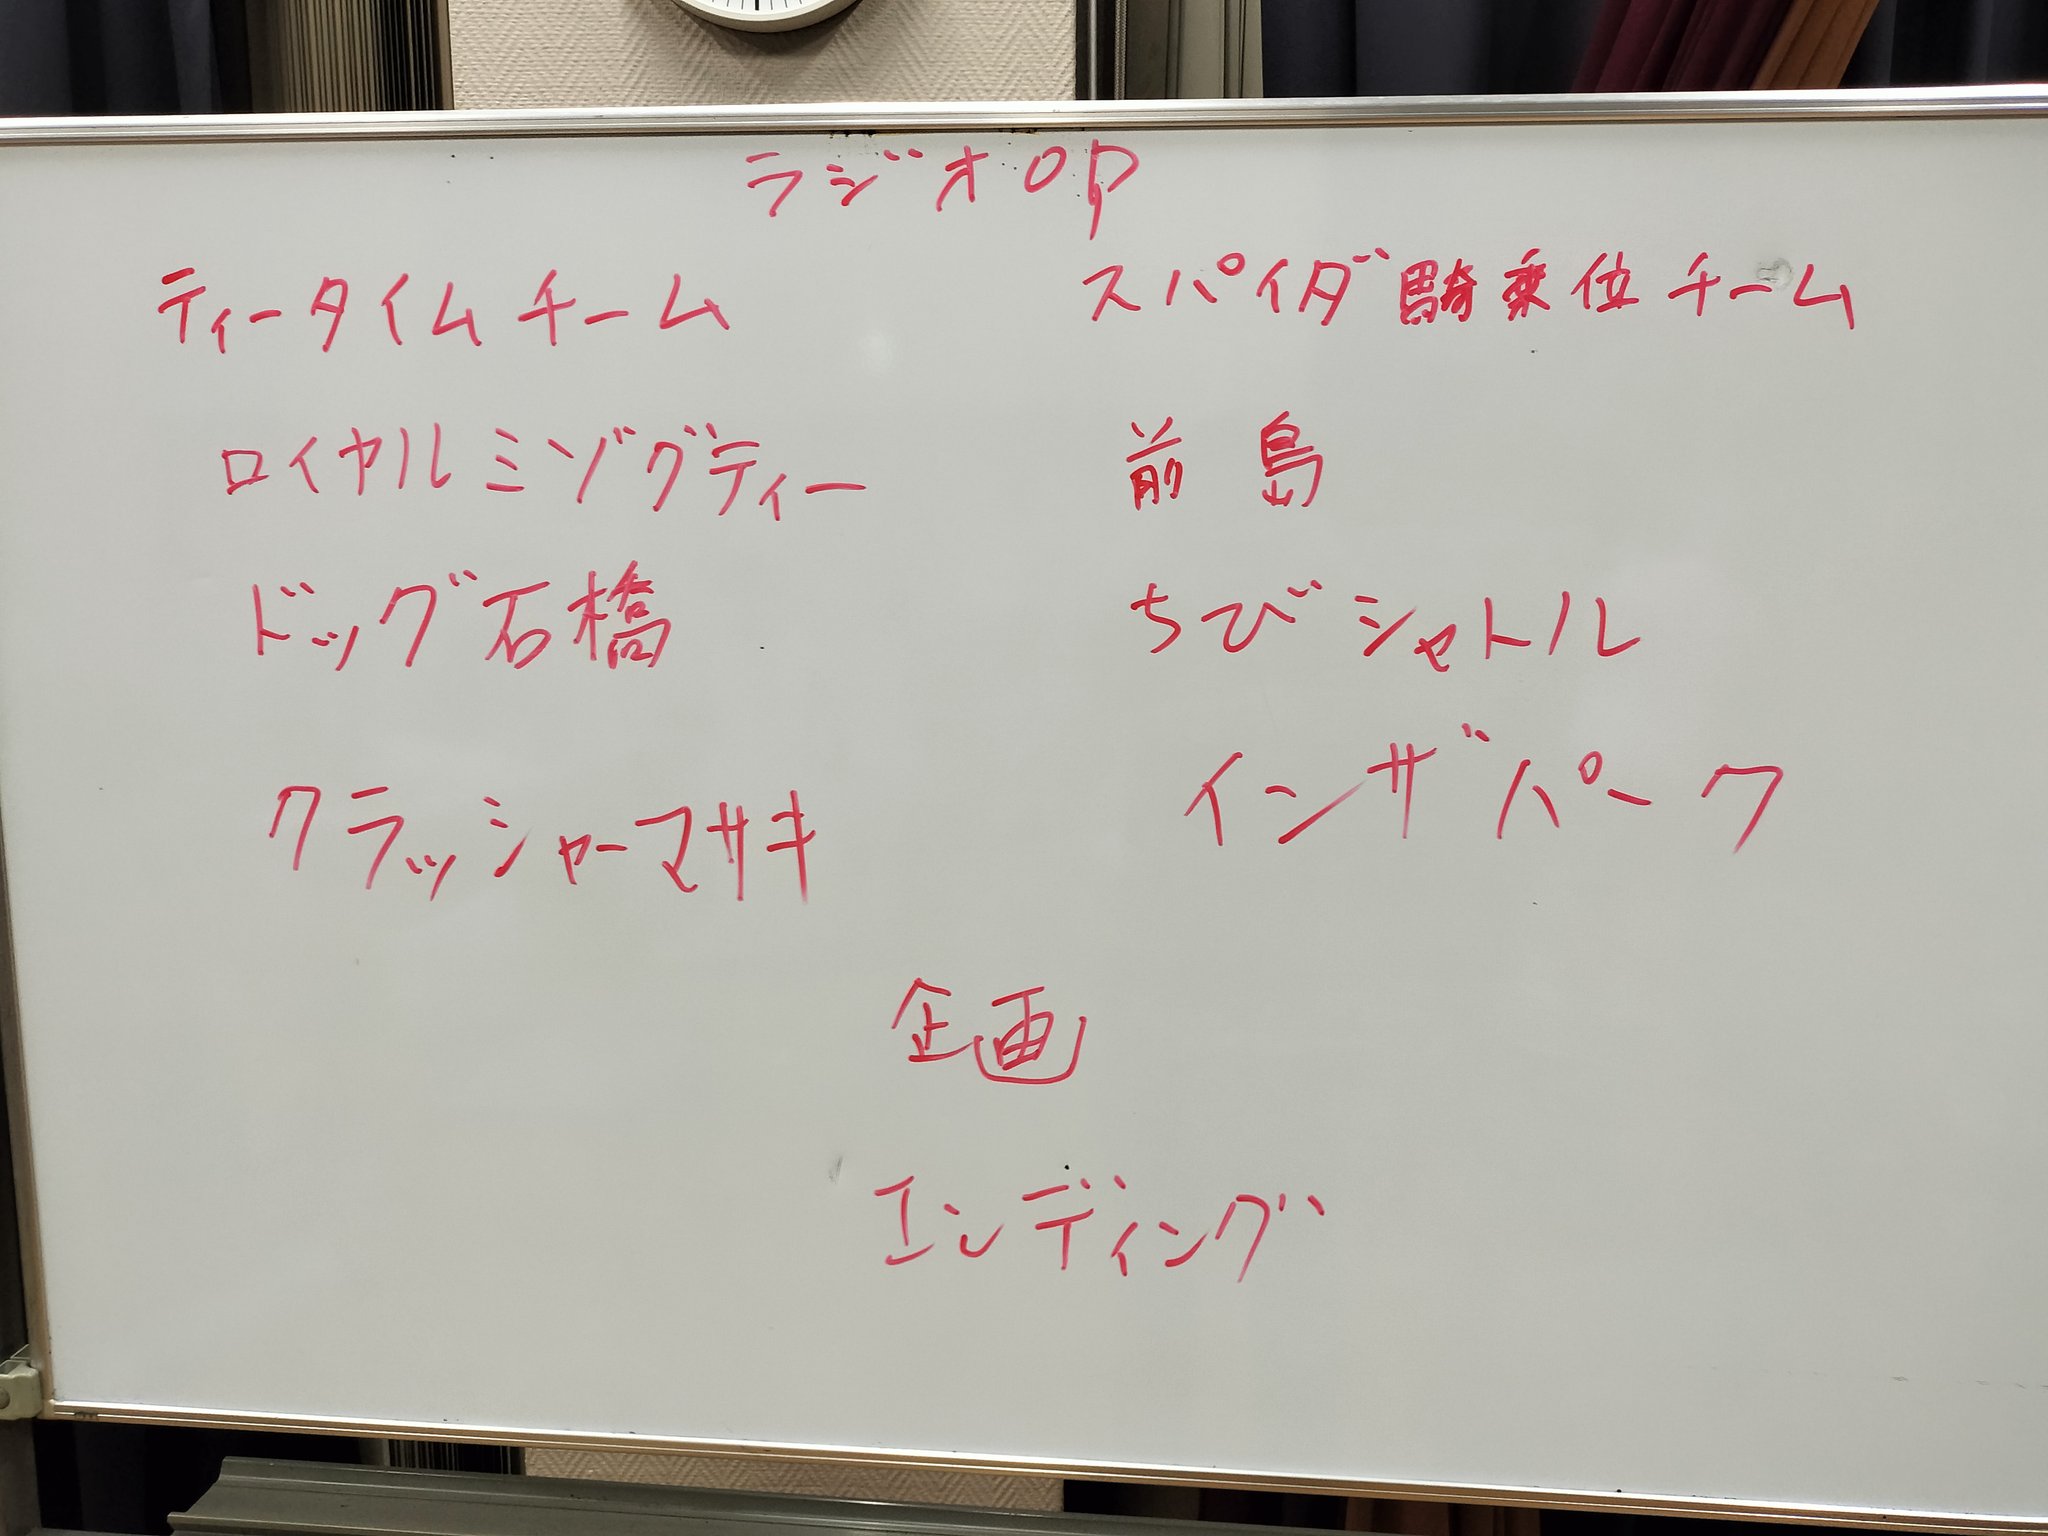 ラジオOP
ティータイムチーム
ロイヤルミゾグティー
ドッグ石橋
クラッシャーマサキ
スパイダ騎乗位チーム
前島
ちびシャトル
インザパーク
企画
エンディング